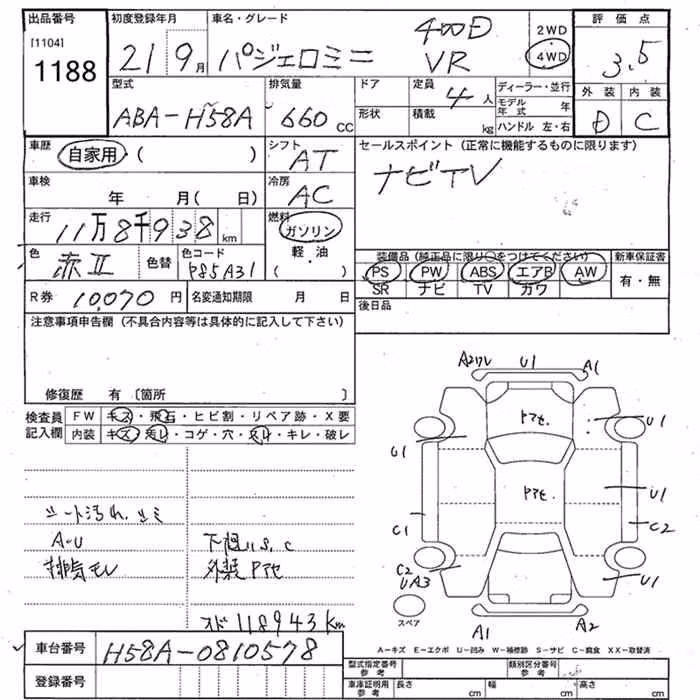 出品番号 初度登録年月 車名・グレード 2WD 評価点
[1104] 1188 21年 9月 パジェロミニ VR 4WD 3.5
型式 排気量 ドア 定員 ディーラー・並行 外装 内装
ABA-H58A 660cc 4人 モデル年式 年 D C
形状 積載 kg ハンドル 左・右
車歴 自家用・( ) シフト AT セールスポイント (正常に機能するものに限ります)
車検 年 月( 日) 冷房 AC ナビTV
走行 11万8千938km 燃料 ガソリン 軽・油 ( )
色 赤II 色替 色コード P85A31
装備品 (純正品に限り○をつけてください) 新車保証書
PS PW ABS エアB AW 有・無
SR ナビ TV カワ
R券 10,070円 名変通知期限 月 日 後日品
注意事項申告欄 (不具合内容等は具体的に記入して下さい)
修復歴 有 〔箇所 〕
検査員記入欄 FW キズ・飛石・ヒビ割・リペア跡・X要
内装 キズ・汚レ・コゲ・穴・スレ・キレ・破レ
A2 U1 A1
U1 U1
U1
C1 C2
C2 UA3 U1
スペア A1 A2
シート汚れ、シミ
A・U 下廻りS、C
排気モレ
118943km
A-キズ E-エクボ U-凹み W-補修跡 S-サビ C-腐食 XX-取替済
車台番号 H58A-0810578
登録番号
型式指定番号 参考 類別区分番号 参考
車庫証明用 参考 長さ cm 幅 cm 高さ cm